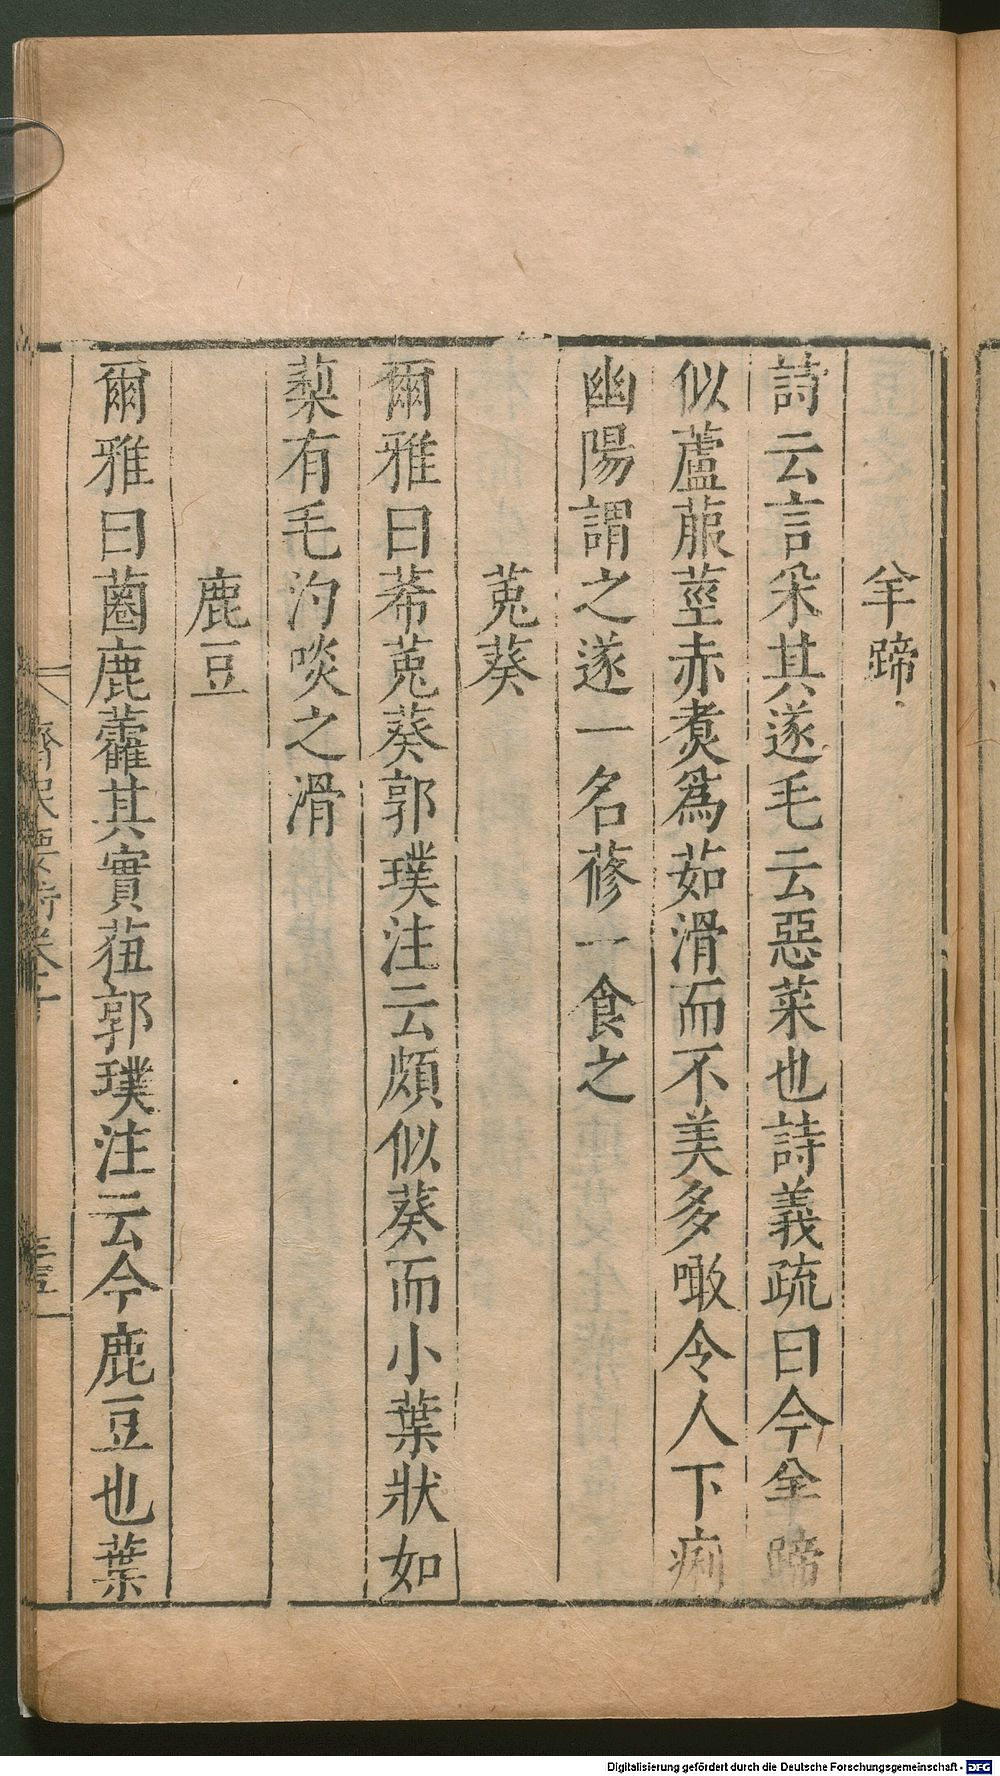 羊蹄
詩云言采其遂毛云惡菜也詩義疏曰今羊蹄
似蘆菔莖赤煑爲茹滑而不美多噉令人下痢
幽陽謂之遂一名蓚一食之
菟葵
爾雅曰莃菟葵郭璞注云頗似葵而小葉狀如
蔾有毛汋啖之滑
鹿豆
爾雅曰蔨鹿藿其實莥郭璞注云今鹿豆也葉
齊民要術卷十
Digitalisierung gefördert durch die Deutsche Forschungsgemeinschaft - DFG